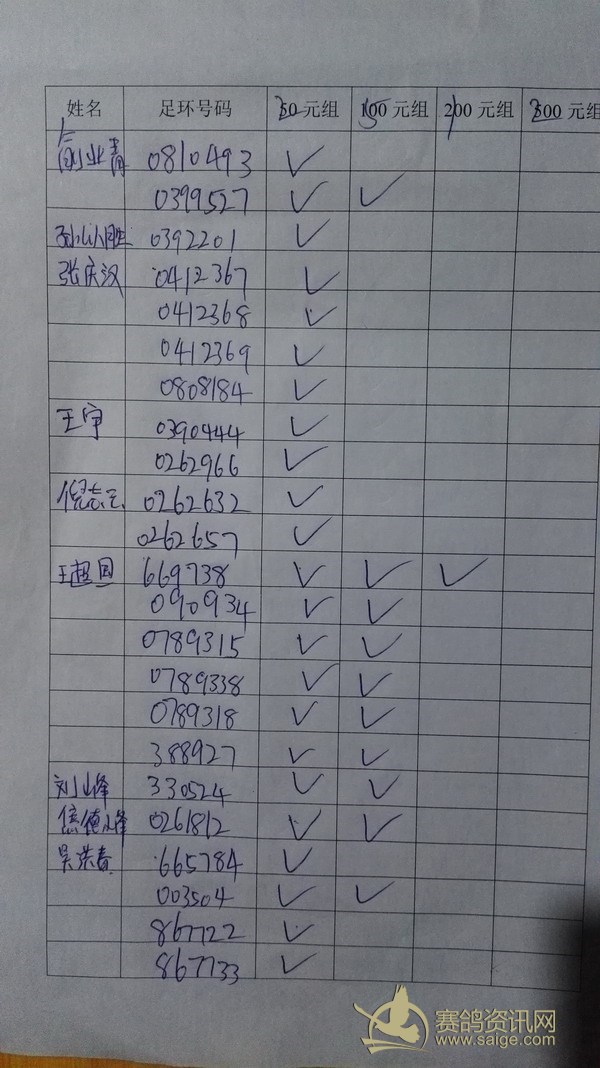 姓名 足环号码 50元组 100元组 200元组 300元组
业青 0810493 ✓
0399527 ✓ ✓
0392201 ✓
张庆汉 0412367 ✓
0412368 ✓
0412369 ✓
0808184 ✓
王宇 0390444 ✓
0262966 ✓
倪志 0262632 ✓
0262657 ✓
王超国 669738 ✓ ✓ ✓
090934 ✓ ✓
0789315 ✓ ✓
0789338 ✓ ✓
0789318 ✓ ✓
388927 ✓ ✓
刘峰 330524 ✓ ✓
焦德峰 0261812 ✓ ✓
吴洪春 665784 ✓
003504 ✓ ✓
867722 ✓
867733 ✓
赛鸽资讯网
www.saige.com